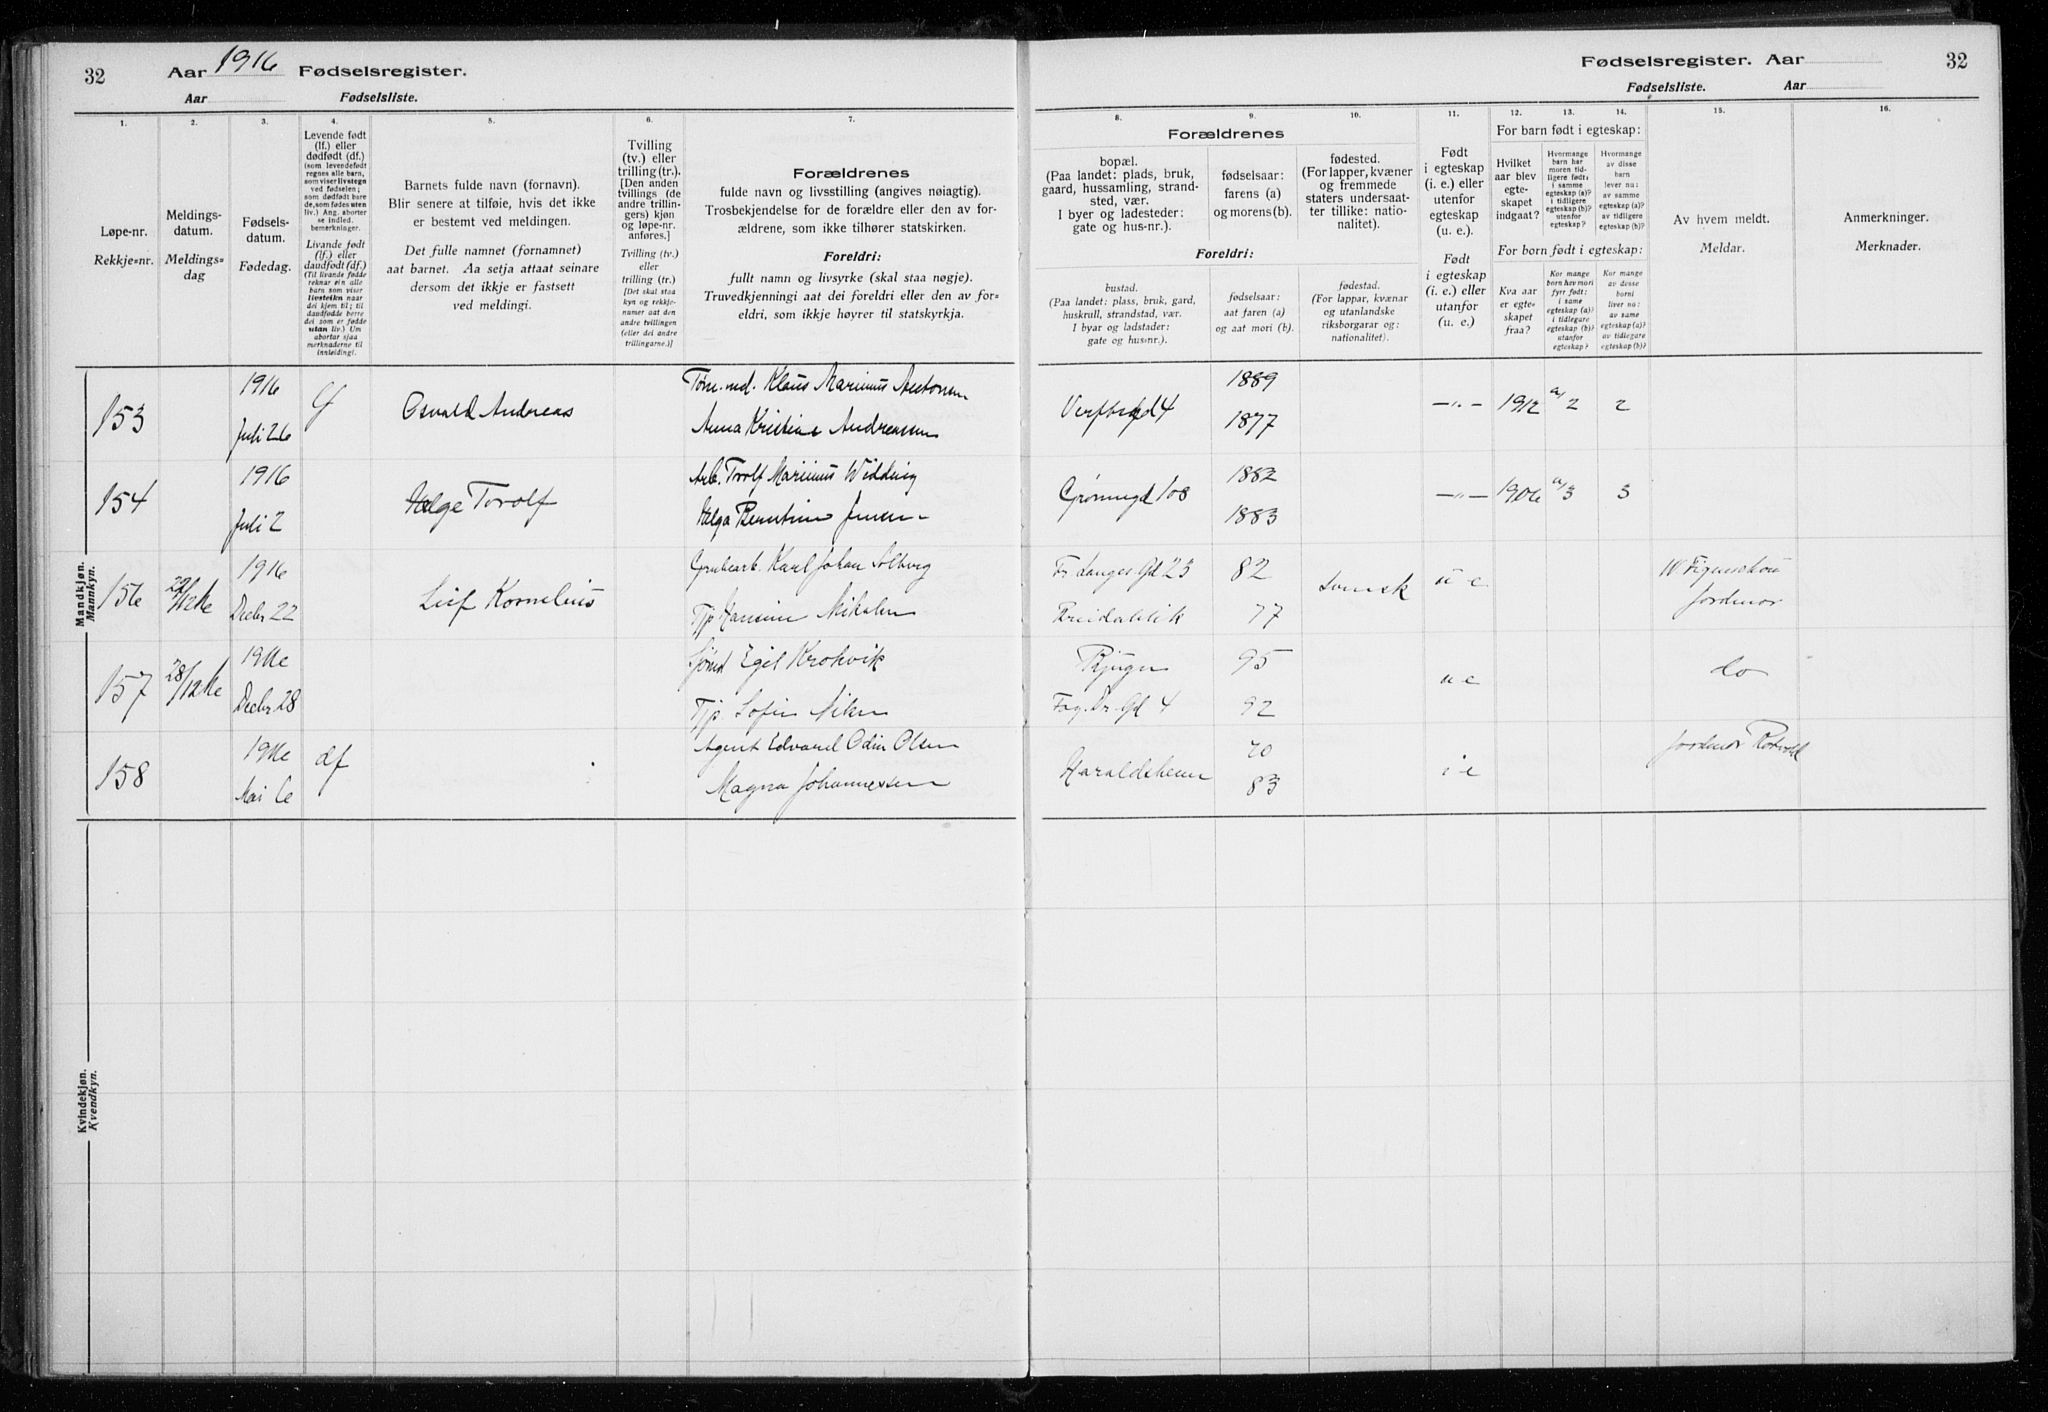 32
Aar 1916 Fødselsregister.
Aar Fødselsliste.
Fødselsregister. Aar
32
Fødselsliste. Aar
1.
Løpe-nr.
Rekkje=nr.
2.
Meldings-
datum.
Meldings=
dag
3.
Fødsels-
datum.
Fødedag.
4.
Levende født
(lf.) eller
dødfødt (df.)
(som levendefødt
regnes alle barn,
som viser livstegn
ved fødselen;
som dødfødt bare
de, som fødes uten
liv.) Ang. aborter
se indled.
bemerkninger.
Livande født
(lf.) eller
daudfødt (df.)
(Til livande fødde
reknar ein alle
born som viser
livsteikn naar
dei kjem til; til
daudfødde berre
dei som er fødde
utan liv.) Um
abortar sjaa
merknaderne til
innleidingi.
5.
Barnets fulde navn (fornavn).
Blir senere at tilføie, hvis det ikke
er bestemt ved meldingen.
Det fulle namnet (fornamnet)
aat barnet. Aa setja attaat seinare
dersom det ikkje er fastsett
ved meldingi.
6.
Tvilling
(tv.) eller
trilling (tr.).
[Den anden
tvillings (de
andre trillin-
gers) kjøn
og løpe-nr.
anføres.]
Tvilling (tv.)
eller
trilling (tr.)
[Det skal staa
kyn og rekkje-
numer aat den
andre tvillingen
(eller dei andre
trillingarne.)]
7.
Forældrenes
fulde navn og livsstilling (angives nøiagtig).
Trosbekjendelse for de forældre eller den av for-
ældrene, som ikke tilhører statskirken.
Foreldri:
fullt namn og livsyrke (skal staa nøgje).
Truvedkjenningi aat dei foreldri eller den av for=
eldri, som ikkje høyrer til statskyrkja.
Forældrenes
8.
bopæl.
(Paa landet: plads, bruk,
gaard, hussamling, strand-
sted, vær.
I byer og ladesteder:
gate og hus-nr.).
9.
fødselsaar:
farens (a)
og morens (b).
10.
fødested.
(For lapper, kvæner
og fremmede
staters undersaat-
ter tillike: natio-
nalitet).
Foreldri:
bustad.
(Paa landet: plass, bruk, gard,
huskrull, strandstad, vær.
I byar og ladstader:
gate og hus=nr.).
fødselsaar:
aat faren (a)
og aat mori (b).
fødestad.
(For lappar, kvænar
og utanlandske
riksborgarar og:
nationalitet).
11.
Født
i egteskap
(i. e.) eller
utenfor
egteskap
(u. e.).
Født
i egteskap
(i. e.) eller
utanfor
(u. e.)
For barn født i egteskap:
12.
Hvilket
aar blev
egte-
skapet
indgaat?
13.
Hvormange
barn har
moren tid-
ligere født:
i samme
egteskap (a)?
i tidligere
egteskap (b)?
utenfor
egteskap?
14.
Hvormange
av disse
barn
lever nu:
av samme
egteskap (a)?
av tidligere
egteskap (b)?
For born født i egteskap:
Kva aar
er egte-
skapet
fraa?
Kor mange
born hev mori
fyrr født:
i same
egteskap (a)?
i tidlegare
egteskap (b)?
utanfor
egteskap?
Kor mange
av desse
borni
liver no:
av same
egteskap (a)?
av tidlegare
egteskap (b)?
15.
Av hvem meldt.
Meldar.
16.
Anmerkninger.
Merknader.
Mandkjøn.
Mannkyn.
153 1916 Juli 26 Osvald Andreas
Klaus Marinus
Anna Kristine Andreassen
4 1889 1877 —"— 1912 a/2 2
154 1916 Juli 2 Helge Torolf
Arb. Torolf Marinius Widding
Helga Berntine Jensen
108 1882 1883 —"— 1906 a/3 3
156 29/12 16 1916 Decbr 22 Leif Kornelius
Grubearb. Karl Johan Solberg
Tjp Hansine Mikalsen
Fr. Langes Gd 23 82 77 svensk u e
Jordmor
157 28/12 16 1916 Decbr 28
Egil Krokvik
Tjp. Sofie
4 95 92 u e do
158 1916 Mai 6 df
Agent Edvard Odin Olsen
Magna Johannessen
Haraldsheim 70 83 i e
Jordmor
Kvindekjøn.
Kvendkyn.